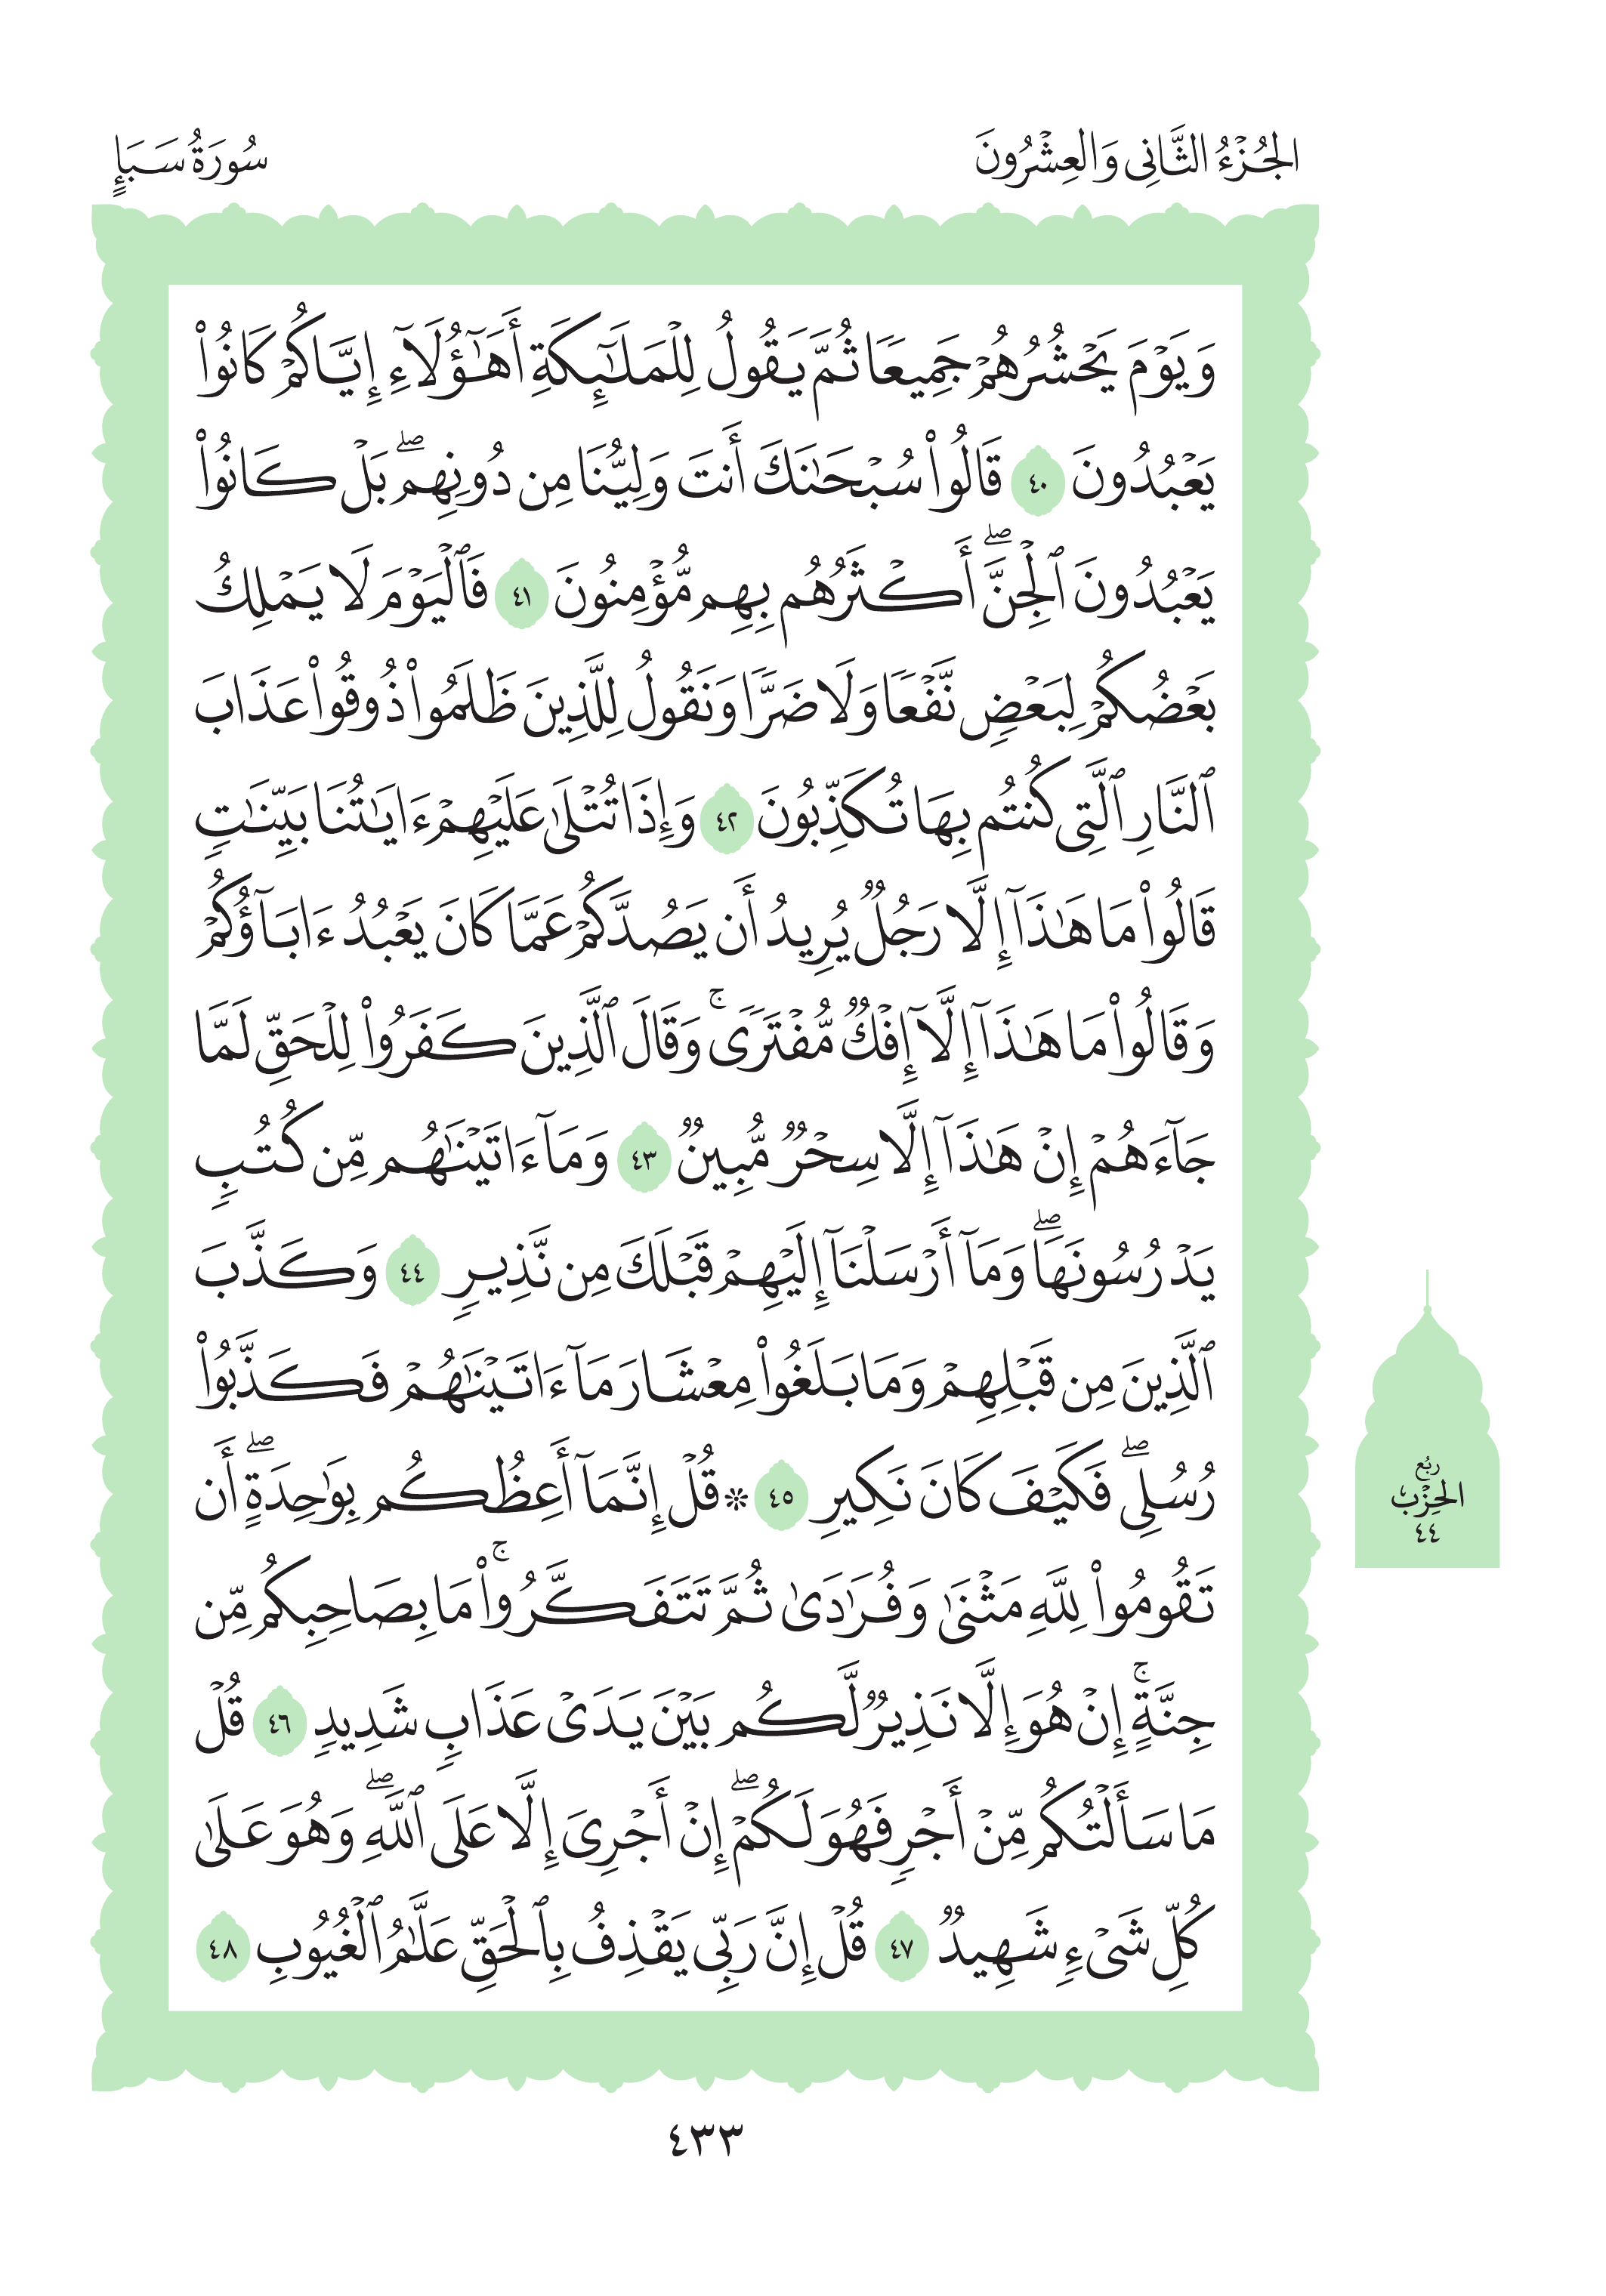 الجُزْءُ الثَّانِي وَالعِشْرُونَ
سُورَةُ سَبَإٍ
وَيَوْمَ يَحْشُرُهُمْ جَمِيعًا ثُمَّ يَقُولُ لِلْمَلَٰٓئِكَةِ أَهَٰٓؤُلَآءِ إِيَّاكُمْ كَانُوا۟
يَعْبُدُونَ ٤٠ قَالُوا۟ سُبْحَٰنَكَ أَنتَ وَلِيُّنَا مِن دُونِهِم ۖ بَلْ كَانُوا۟
يَعْبُدُونَ ٱلْجِنَّ ۖ أَكْثَرُهُم بِهِم مُّؤْمِنُونَ ٤١ فَٱلْيَوْمَ لَا يَمْلِكُ
بَعْضُكُمْ لِبَعْضٍ نَّفْعًا وَلَا ضَرًّا وَنَقُولُ لِلَّذِينَ ظَلَمُوا۟ ذُوقُوا۟ عَذَابَ
ٱلنَّارِ ٱلَّتِى كُنتُم بِهَا تُكَذِّبُونَ ٤٢ وَإِذَا تُتْلَىٰ عَلَيْهِمْ ءَايَٰتُنَا بَيِّنَٰتٍ
قَالُوا۟ مَا هَٰذَآ إِلَّا رَجُلٌ يُرِيدُ أَن يَصُدَّكُمْ عَمَّا كَانَ يَعْبُدُ ءَابَآؤُكُمْ
وَقَالُوا۟ مَا هَٰذَآ إِلَّآ إِفْكٌ مُّفْتَرًى ۚ وَقَالَ ٱلَّذِينَ كَفَرُوا۟ لِلْحَقِّ لَمَّا
جَآءَهُمْ إِنْ هَٰذَآ إِلَّا سِحْرٌ مُّبِينٌ ٤٣ وَمَآ ءَاتَيْنَٰهُم مِّن كُتُبٍ
يَدْرُسُونَهَا ۖ وَمَآ أَرْسَلْنَآ إِلَيْهِمْ قَبْلَكَ مِن نَّذِيرٍ ٤٤ وَكَذَّبَ
ٱلَّذِينَ مِن قَبْلِهِمْ وَمَا بَلَغُوا۟ مِعْشَارَ مَآ ءَاتَيْنَٰهُمْ فَكَذَّبُوا۟
رُسُلِى ۖ فَكَيْفَ كَانَ نَكِيرِ ٤٥ ۞ قُلْ إِنَّمَآ أَعِظُكُم بِوَٰحِدَةٍ ۖ أَن
تَقُومُوا۟ لِلَّهِ مَثْنَىٰ وَفُرَٰدَىٰ ثُمَّ تَتَفَكَّرُوا۟ ۚ مَا بِصَاحِبِكُم مِّن
جِنَّةٍ ۚ إِنْ هُوَ إِلَّا نَذِيرٌ لَّكُم بَيْنَ يَدَىْ عَذَابٍ شَدِيدٍ ٤٦ قُلْ
مَا سَأَلْتُكُم مِّنْ أَجْرٍ فَهُوَ لَكُمْ ۖ إِنْ أَجْرِىَ إِلَّا عَلَى ٱللَّهِ ۖ وَهُوَ عَلَىٰ
كُلِّ شَىْءٍ شَهِيدٌ ٤٧ قُلْ إِنَّ رَبِّى يَقْذِفُ بِٱلْحَقِّ عَلَّٰمُ ٱلْغُيُوبِ ٤٨
رُبْع
الحِزْب
٤٤
٤٣٣